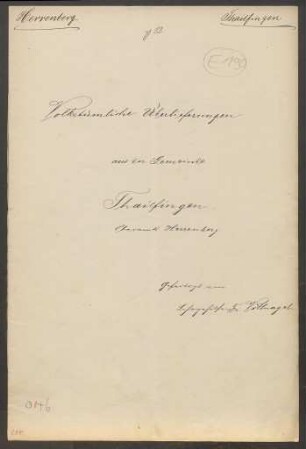 Herrenberg. Thailfingen
E 190
Volkstümliche Überlieferungen
aus der Gemeinde
Thailfingen
Oberamt Herrenberg
Gefertigt von
Vollnagel